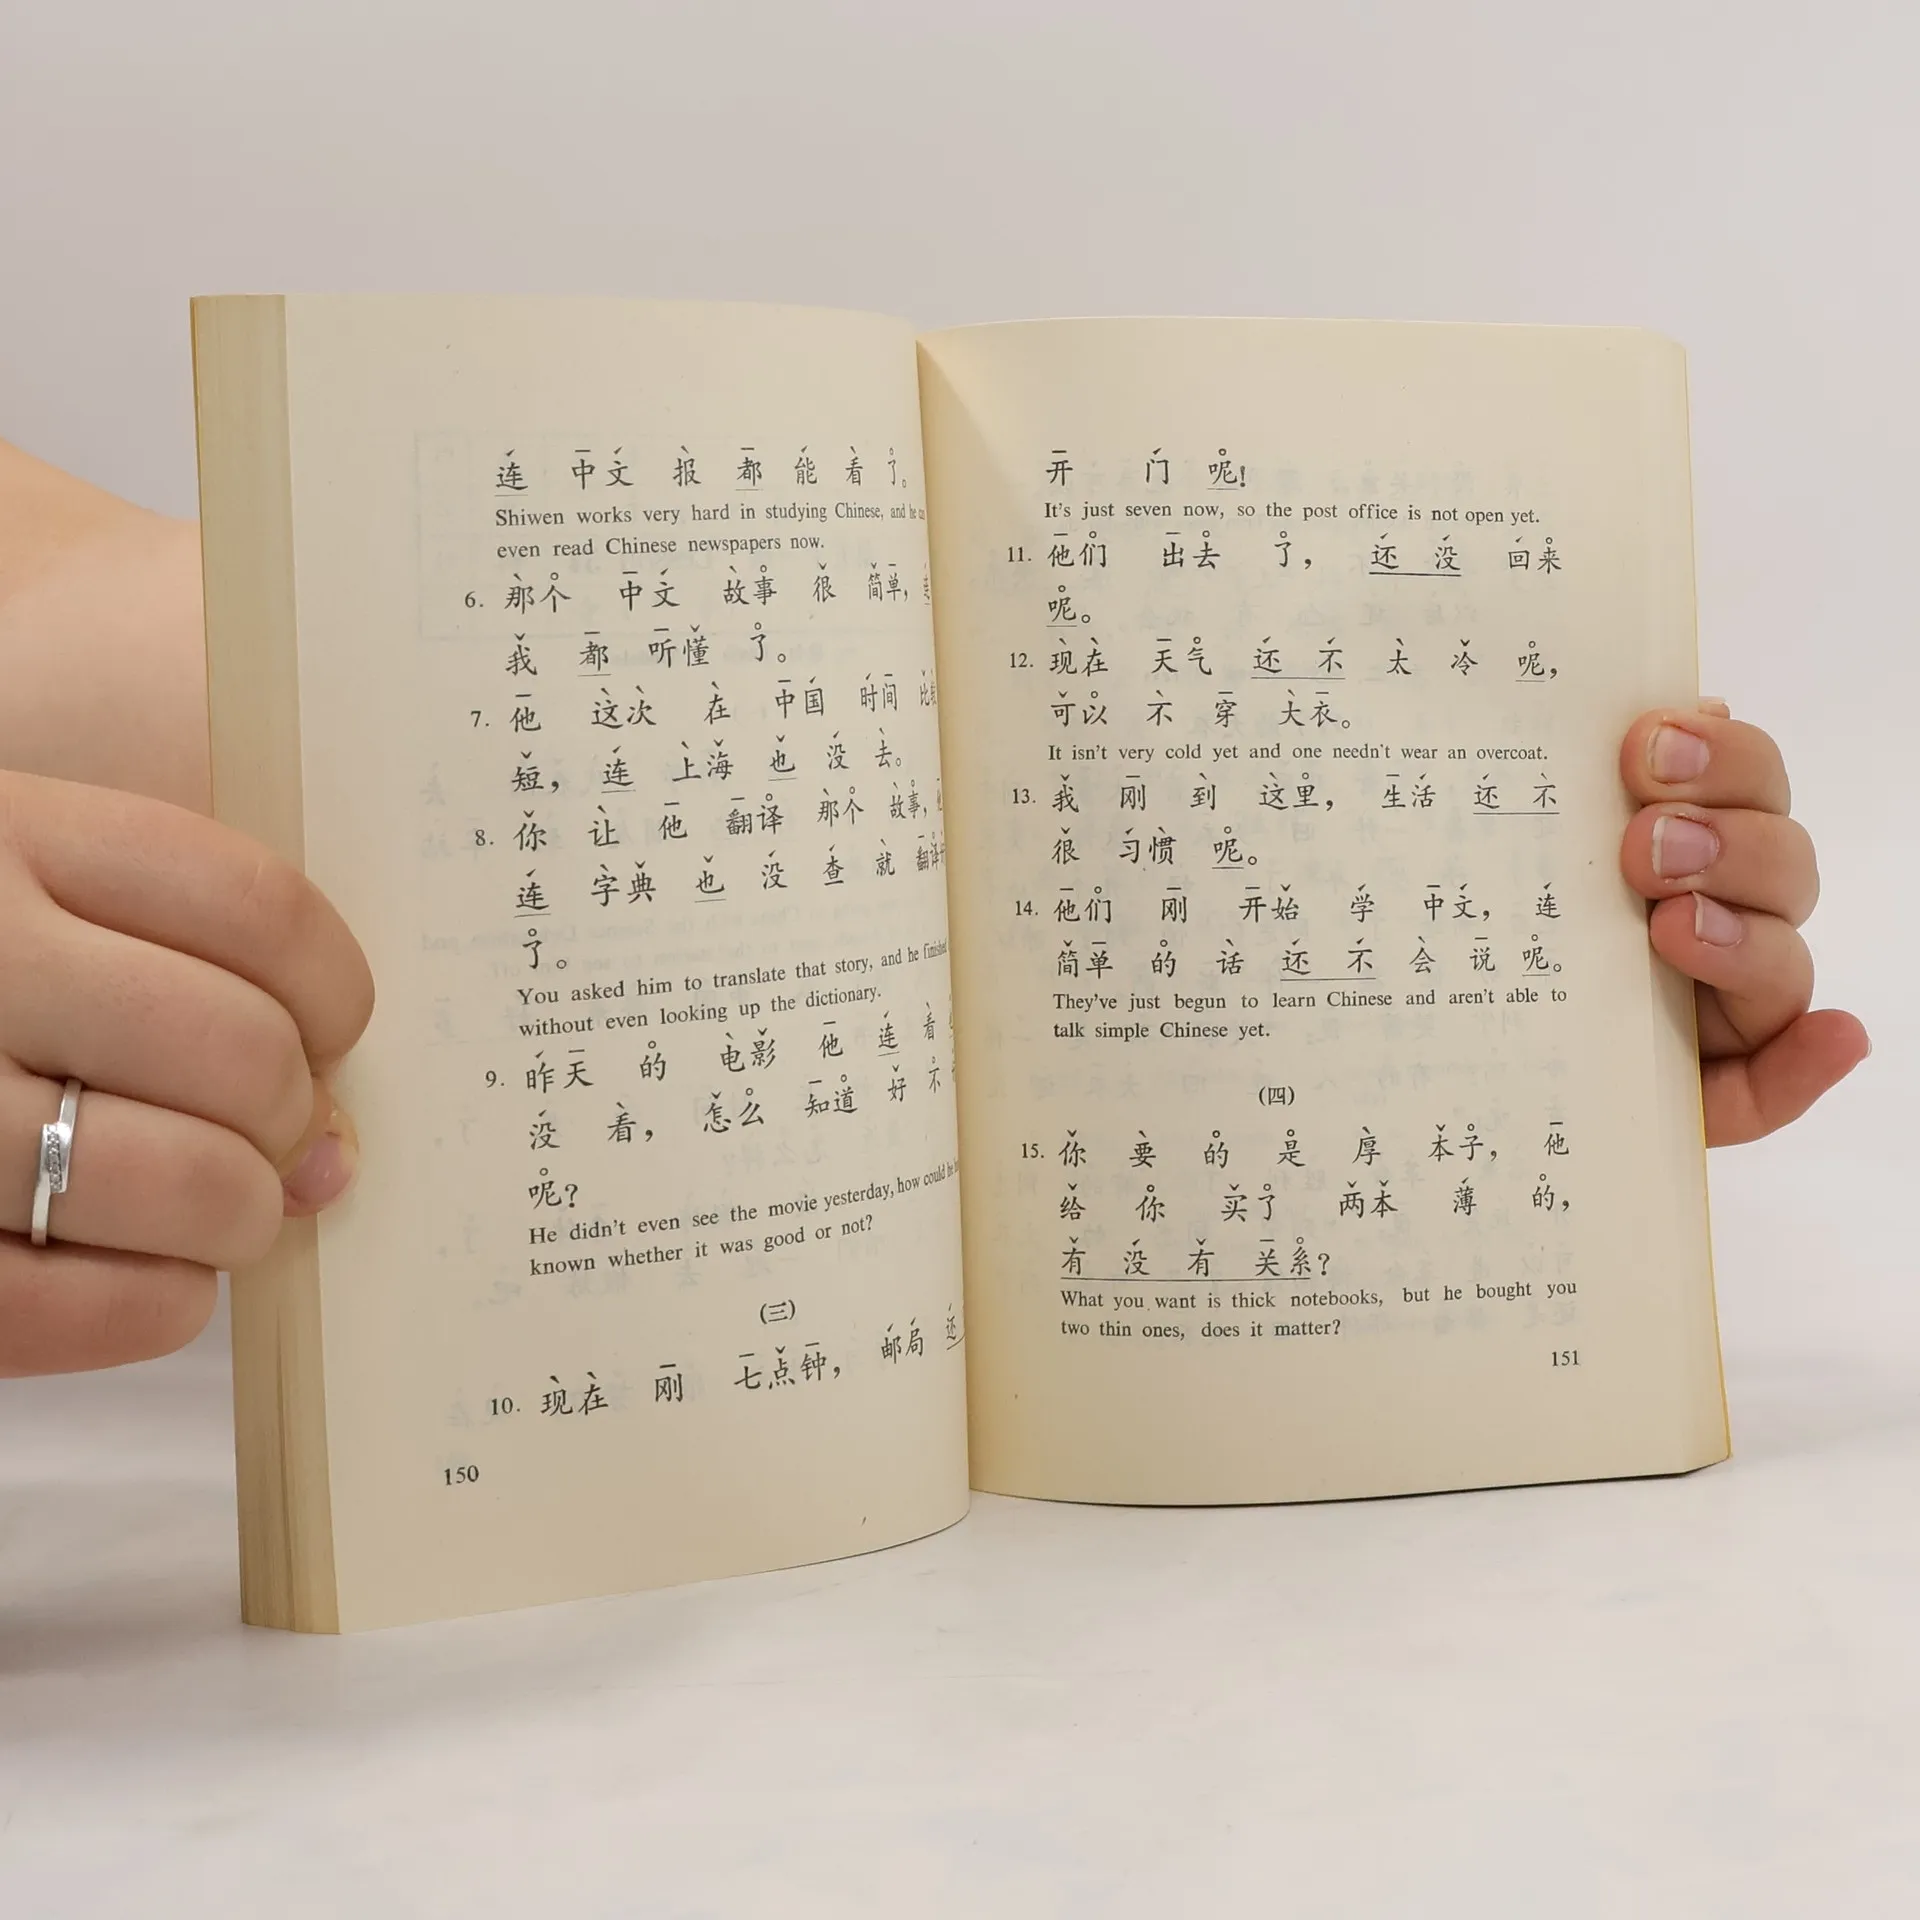 连 中文 报 都 能 看 了。
Shiwen works very hard in studying Chinese, and he
even read Chinese newspapers now.
6. 那个 中文 故事 很 简单, 连
我 都 听懂 了。
7. 他 这次 在 中国 时间 比
短, 连 上海 也 没 去。
8. 你 让 他 翻译 那个 故事,
连 字典 也 没 查 就 翻译
了。
You asked him to translate that story, and he finished
without even looking up the dictionary.
9. 昨天 的 电影 他 连 看
没 看, 怎么 知道 好 不
呢?
He didn't even see the movie yesterday, how could he
known whether it was good or not?
(三)
10. 现在 刚 七点钟, 邮局 还
150
开 门 呢!
It's just seven now, so the post office is not open yet.
11. 他们 出去 了, 还 没 回来
呢。
12. 现在 天气 还 不 太 冷 呢,
可以 不 穿 大衣。
It isn't very cold yet and one needn't wear an overcoat.
13. 我 刚 到 这里, 生活 还 不
很 习惯 呢。
14. 他们 刚 开始 学 中文, 连
简单 的 话 还 不 会 说 呢。
They've just begun to learn Chinese and aren't able to
talk simple Chinese yet.
(四)
15. 你 要 的 是 厚 本子, 他
给 你 买了 两本 薄 的,
有 没 有 关系?
What you want is thick notebooks, but he bought you
two thin ones, does it matter?
151